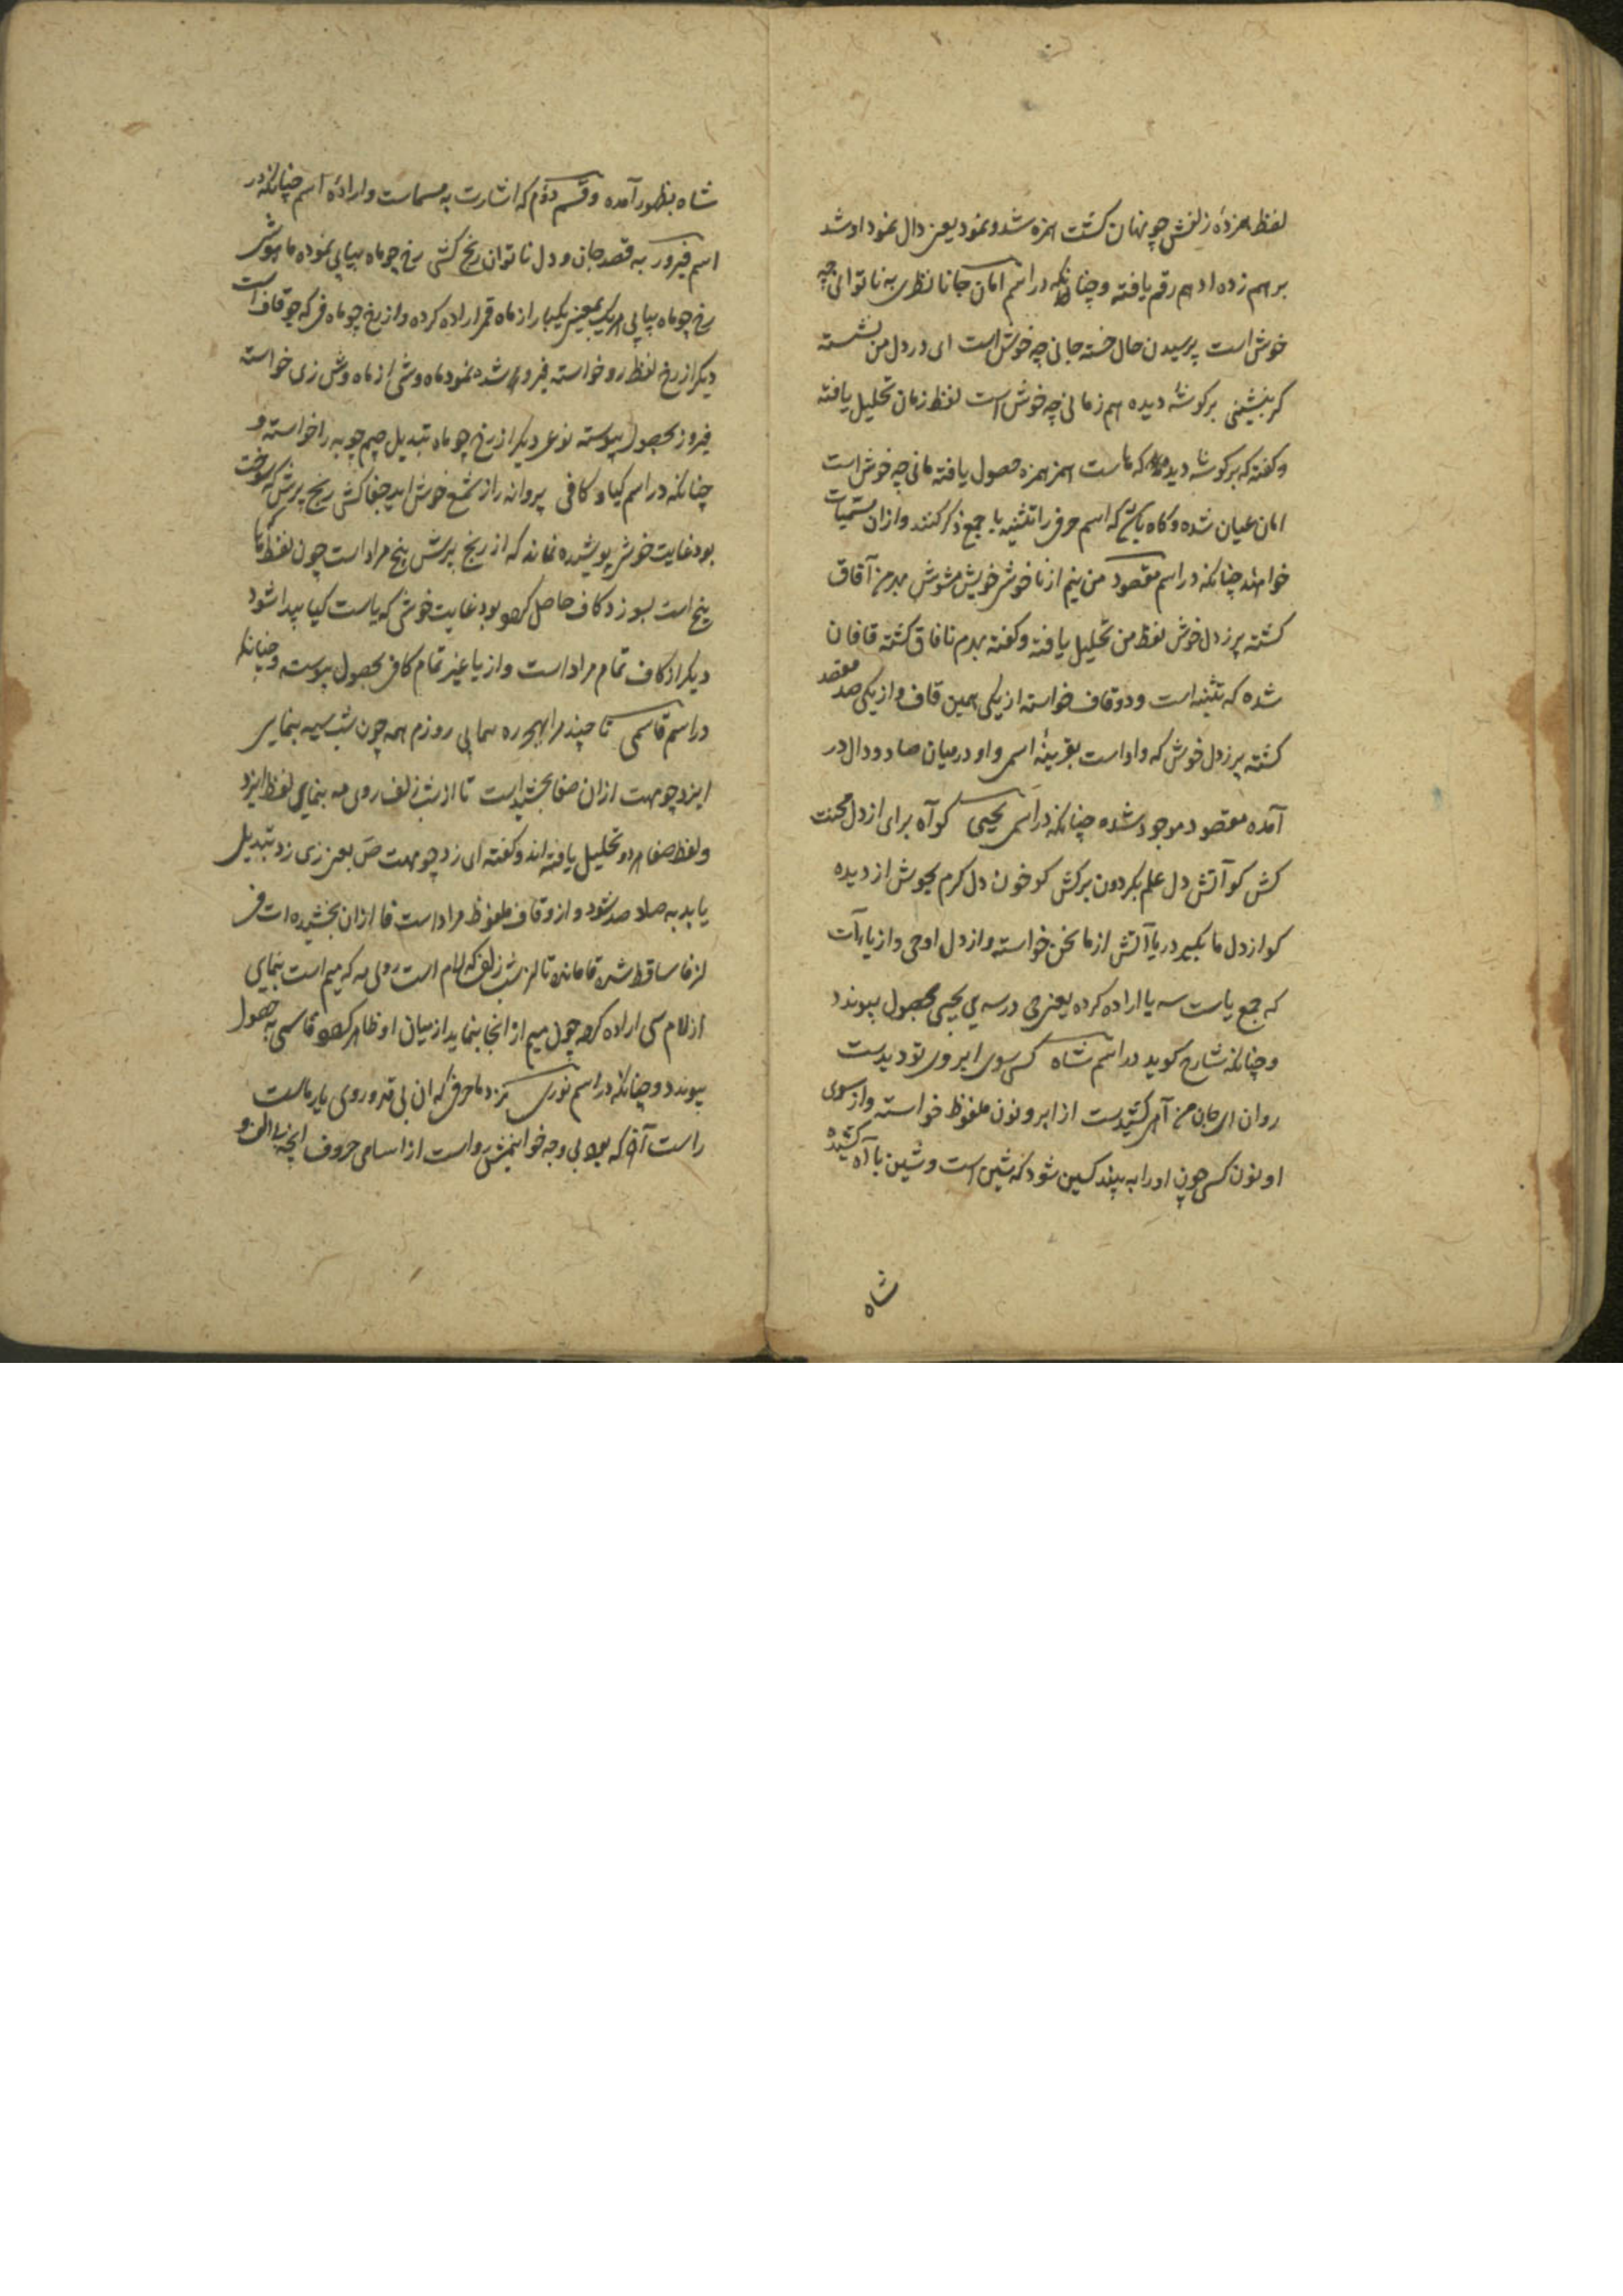 لفظ همزده زلفش چو نهان کشت همزه شد و نمود یعنی دال نمود او شد
بر هم زده ادهم رقم یافته و چنانکه در اسم امان جانا نظری به ناتوانی چه
خوش است پرسیدن حال خسته جانی چه خوش است ای در دل من نشسته
کر بنشینی بر کوشه دیده هم زمانی چه خوش است لفظ زمان تحلیل یافته
و کفته که بر کوشه دیده که ماست همزه حصول یافته مانی چه خوش است
امان عیان شده و کاه باشد که اسم حرف را تثنیه یا جمع ذکر کنند و از ان مسمیات
خواهند چنانکه در اسم مقصود من بنیم از ناخوش خویش مشوش بدم ز آفاق
کشته پر ز دل خوش لفظ من تحلیل یافته و کفته بدم نافاق کشته قافان
شده که تثنیه است و دو قاف خواسته از یکی همین قاف و از یکی صد مقصد
کشته پر ز دل خوش که واو است بقرینه اسمی واو در میان صاد و دال در
آمده مقصود موجود شده چنانکه در اسم یحیی کو آه برای از دل محنت
کش کو آتش دل علم بکردون برکش کو خون دل کرم بجوش از دیده
کو از دل ما بکیر دریا آتش از ما نحن خواسته و از دل او حی و از یا یاآت
که جمع یاست سه یا اراده کرده یعنی حی در سه ی یحیی بحصول پیوندد
و چنانکه شارح کوید در اسم شاه کسی سوی ابروی تو دیدست
روان از جان من آهی کشیدست از ابرو نون ملفوظ خواسته و از سوی
او نون کسی چون او را به بیند کسین شود که شین است و شین با آه کشیده
شاه
شاه بظهور آمده و قسم دوم که اشارت به مسماست و اراده اسم چنانکه در
اسم فیروز به قصد جان و دل ناتوان رنج کشی رخ چو ماه پیاپی نموده ماهوشی
رخ چو ماه پیاپی هر یک بمعنی یکبار از ماه قمر اراده کرده و از رخ چو ماه فی که چو قاف است
دیکر از رخ لفظ رو خواسته فیرو شده نمود ماه وشی از ماه وش زی خواسته
فیروز بحصول پیوسته نوعی دیکر از رخ چو ماه تبدیل جیم چو به را خواسته و
چنانکه در اسم کیا و کافی پروانه را ز شمع خوش اید جفاکشی رنج پرش که سوخت
بود غایت خوشی پوشیده نماند که از رنج پرش پنج مراد است چون لفظ
پنج است بسوزد کاف حاصل کرد و بود غایت خوشی که یاست کیا پیدا شود
دیکر از کاف تمام مراد است و از یا غیر تمام کافی بحصول پیوسته و چنانکه
در اسم قاسمی تا چند مرا بهجر ره بنمایی روزم همه چون شب سیه بنمایی
ایزد چو مهت ازان صفا بخشید است تا از شب زلف روی مه بنمای لفظ ایزد
و لفظ صفا هر دو تحلیل یافته اند و کفته ای زد چو مهت ص یعنی زی زد تبدیل
یابد به صاد صد شود و از و قاف ملفوظ مراد است فا ازان بخشیده است فی
از فا ساقط شده قا مانده تا از شب زلف که لام است روی مه که میم است بنمای
از لام سی اراده کرده چون میم از انجا بنماید از میان او ظاهر کردد قاسمی به حصول
پیوندد و چنانکه در اسم نوری نزد ما حرفی که ان بی قد و روی یار ماست
راست آن که بود بی وجه خوانیمش رواست از اسامی حروف انچه بی الف و